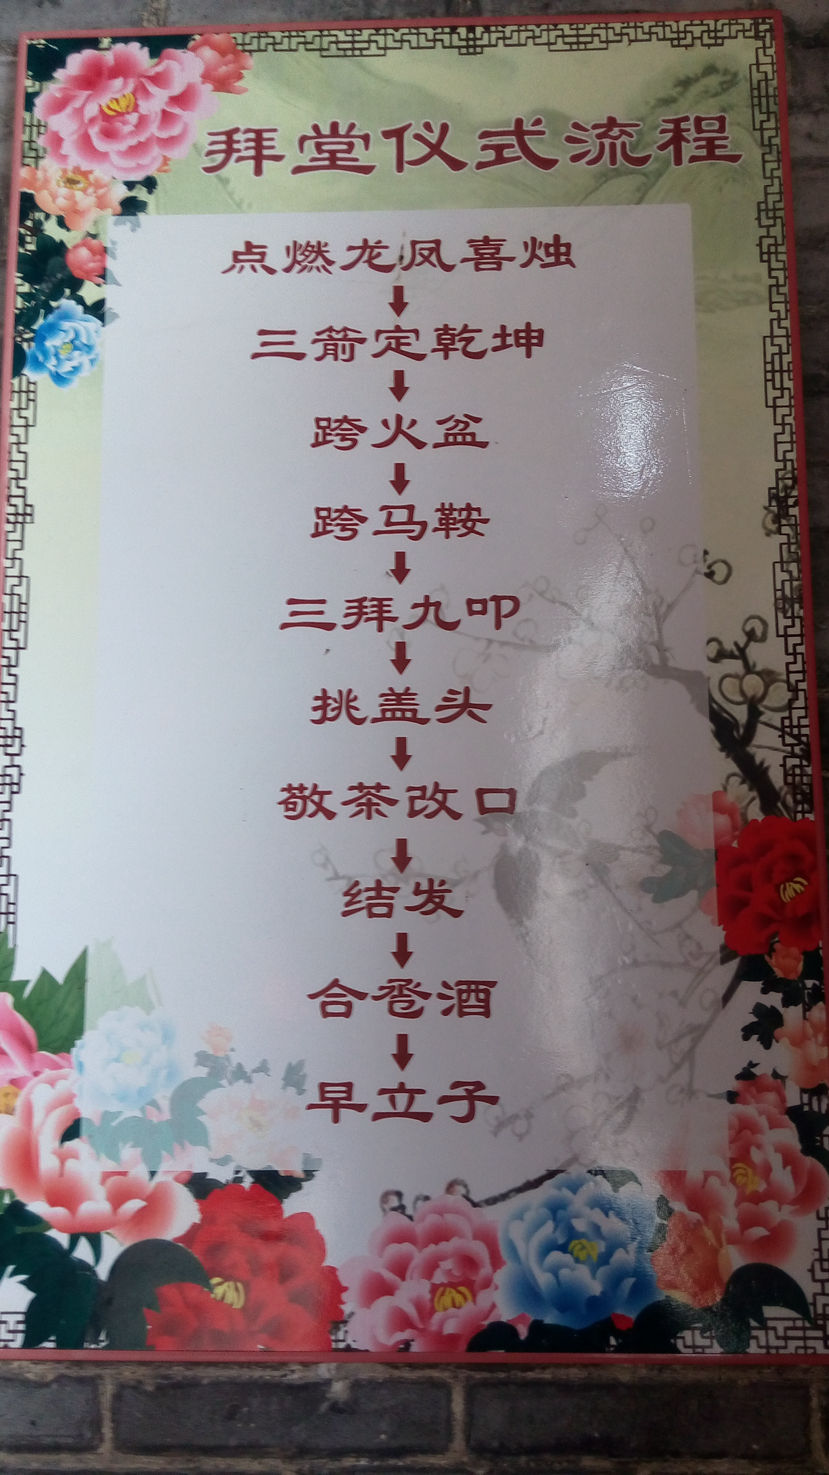 拜堂仪式流程
点燃龙凤喜烛
三箭定乾坤
跨火盆
跨马鞍
三拜九叩
挑盖头
敬茶改口
结发
合卺酒
早立子